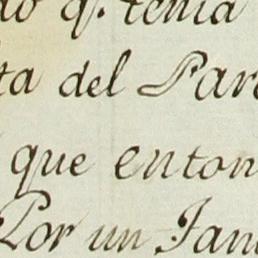 do q.e tenia
ta del Par
que enton
Por un Jan